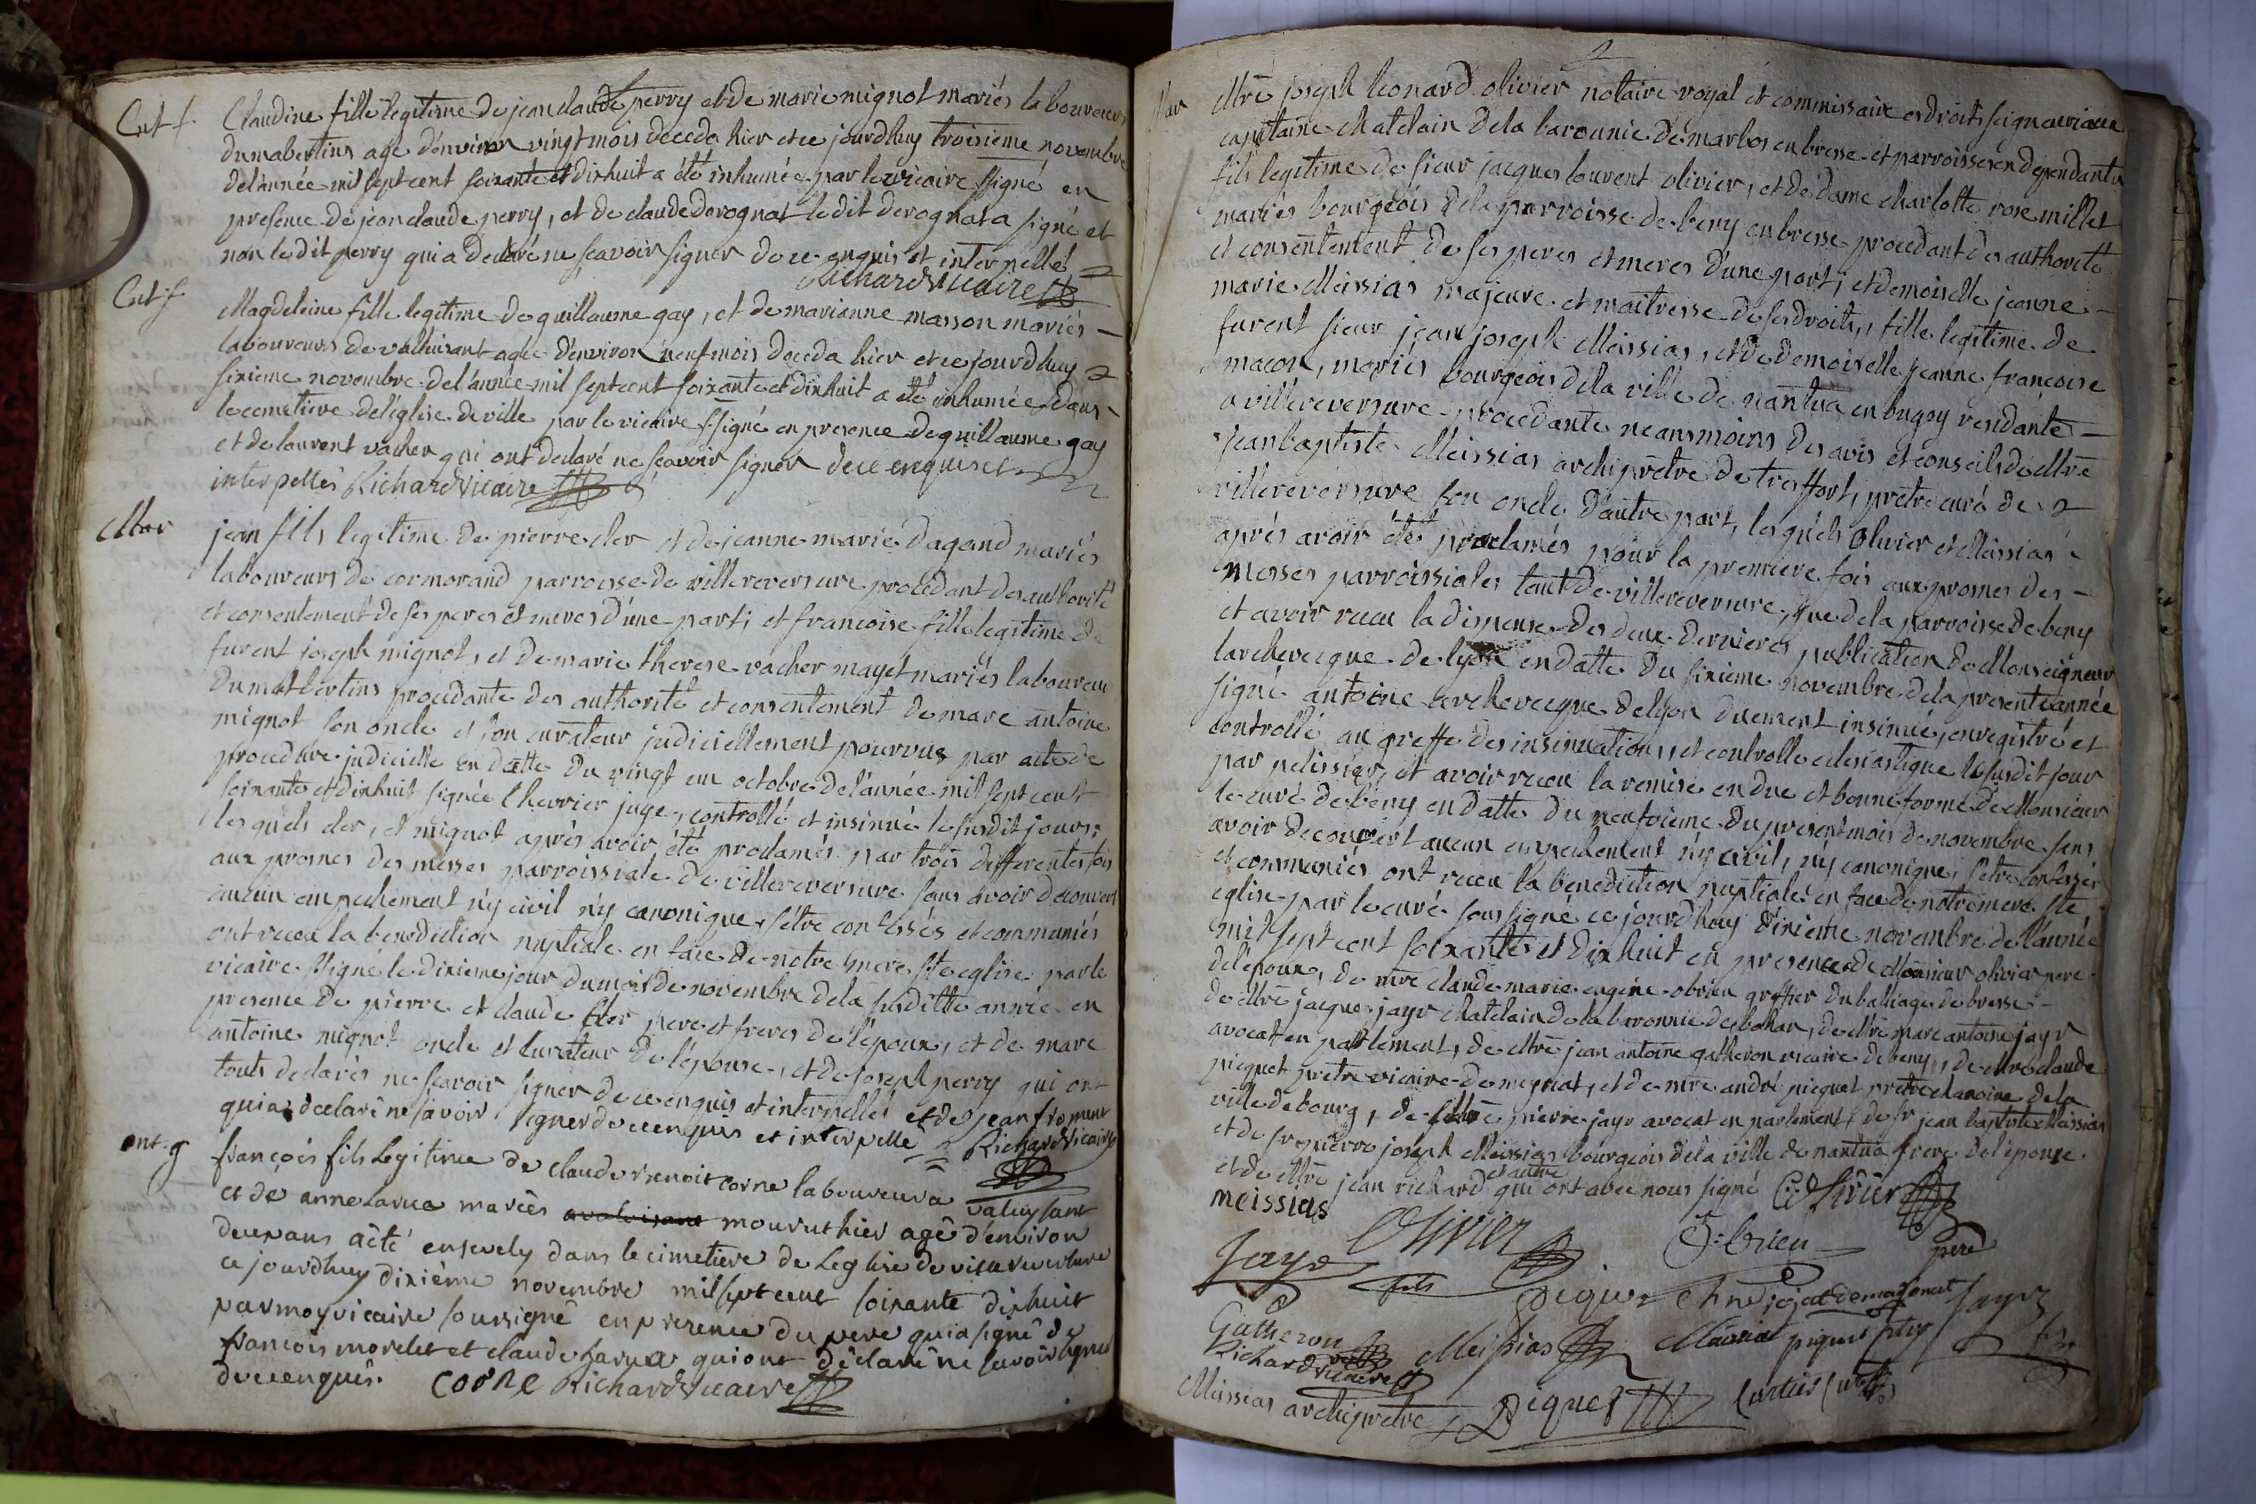 Ent f. Claudine fille legitime de jean claude perry et de marie mignot mariés laboureurs
du mabertins age d'environ vingt mois deceda hier et ce jourdhuy troisieme novembre
del'année mil sept cent soixante et dixhuit a été inhumée par le vicaire ssigné en
presence de jean claude perry, et de claude derognat le dit derognat a signé et
non le dit perry qui a declaré ne scavoir signer de ce enquis et interpellé
Richard vicaire
Ent f Magdeleine fille legitime de guillaume gay, et de marianne masson mariés
laboureurs de valuisant agée d'environ neuf mois deceda hier et ce jourdhuy
sixieme novembre del'année mil sept cent soixante et dixhuit a été inhumée dans
le cemetiere del'église de ville par le vicaire ssigné en presence de guillaume gay
et de laurent vacher qui ont declaré ne scavoir signer de ce enquis et
interpellés Richard vicaire
Mar jean fils legitime de pierre cler et de jeanne marie dagand mariés
laboureurs de cormorand parroisse de villereversure procedant des authorité
et consentement de ses peres et meres d'une part; et francoise fille legitime de
furent joseph mignot, et de marie therese vacher mayet mariés laboureur
du matbertins procedante des authorité et consentement de marc antoine
mignot son oncle et son curateur judiciellement pourvus par acte de
procedure judicielle en datte du vingt un octobre del'année mil sept cent
soixante et dixhuit signée Chevrier juge, controllé et insinué le susdit jour;
les quels cler, et mignot après avoir été proclamés par trois differentes fois
aux prosnes des messes parroissiale de villereversure sans avoir decouvert
aucun empechement n'y civil n'y canonique, s'être confessés et communiés
ont receu la benediction nuptiale en face de notre mere ste eglise par le
vicaire ssigné le dixieme jour du mois de novembre dela susditte année en
presence de pierre et claude cler pere et freres de l'époux, et de marc
antoine mignot oncle et curateur de l'épouse, et de joseph perry qui ont
touts declarés ne scavoir signer de ce enquis et interpellés et de jean froment
qui a declaré ne savoir signer de ce enquis et interpelle Richard vicaire
ent. g françois fils Legitime de claude benoit corne laboureur a valuysant
et de anne Larue mariés avaluisant mourut hier agé d'environ
deux ans a été ensevely dans le cimetiere de Leglise de villereversure
ce jourdhuy dixiéme novembre mil sept cent soixante dixhuit
par moy vicaire soussigné en presence du pere qui a signé de
françois morelet et claude Larue qui ont déclaré ne savoir signer
de ce enquis. CORNE Richard vicaire
2
Mar Mtre joseph leonard olivier notaire royal et commissaire es droits seigneuriaux
capitaine chatelain dela baronnie de marbos en bresse et parroisses en dependantes
fils legitime de sieur jacques laurent olivier, et de dame charlotte rose millet
mariés bourgeois dela parroisse de beny en bresse procedant des authorité
et consentement de ses peres et meres d'une part; et demoiselle jeanne
marie Meissias majeure et maitresse de ses droits, fille legitime de
furent sieur jean joseph Meissias, et de demoiselle jeanne francoise
macon, mariés bourgeois dela ville de nantua en bugey residante
a villereversure procedante neansmoins des avis et conseils de Mtre
jean baptiste Meissias archiprêtre de treffort, prêtre curé de
villereversure son oncle d'autre part, les quels olivier et Meissias
après avoir étés proclamés pour la premiere fois aux prosnes des
messes parroissiales tant de villereversure, que dela parroisse de beny
et avoir receu la dispense des deux dernieres publication de Monseigneur
larchevecque de lyon en datte du sixieme novembre dela presente année
signé antoine archevecque de lyon duement insinué, enregistré et
controllé au greffe des insinuations, et controlle eclesiastique le susdit jour
par pelissier, et avoir receu la remise en due et bonne forme de Monsieur
le curé de beny en datte du neufvieme du present mois de novembre sans
avoir decouvert aucun empechement n'y civil, n'y canonique, s'etre confessés
et communiés ont receu la benediction nuptiale en face de notre mere ste
eglise par le curé soussigné ce jourdhuy dixieme novembre de l'année
mil sept cent soixante et dixhuit en presence de Monsieur olivier pere
del'époux, de mre claude marie eugene obrien greffier du balliage de bresse
de Mtre jacques jayr chatelain de la baronnie de bohan, de Mtre marc antoine jayr
avocat en parlement, de Mtre jean antoine gatheron vicaire de beny, de Mre claude
picquet prêtre vicaire de meyriat, et de mre andré picquet prêtre chanoine dela
ville de bourg, de Mtre pierre jayr avocat en parlement, de sr jean baptiste Meissias
et de sr pierre joseph Meissias bourgeois dela ville de nantua frere del'épouse
et de Mtre jean richard et autre qui ont avec nous signé Olivier
meissias
Jayr Olivier fils O-brien pere
Piquet Jayr
Gatheron Meissias Meissias piquet ptre
Richard vicaire
Meissias archiprêtre Piquet